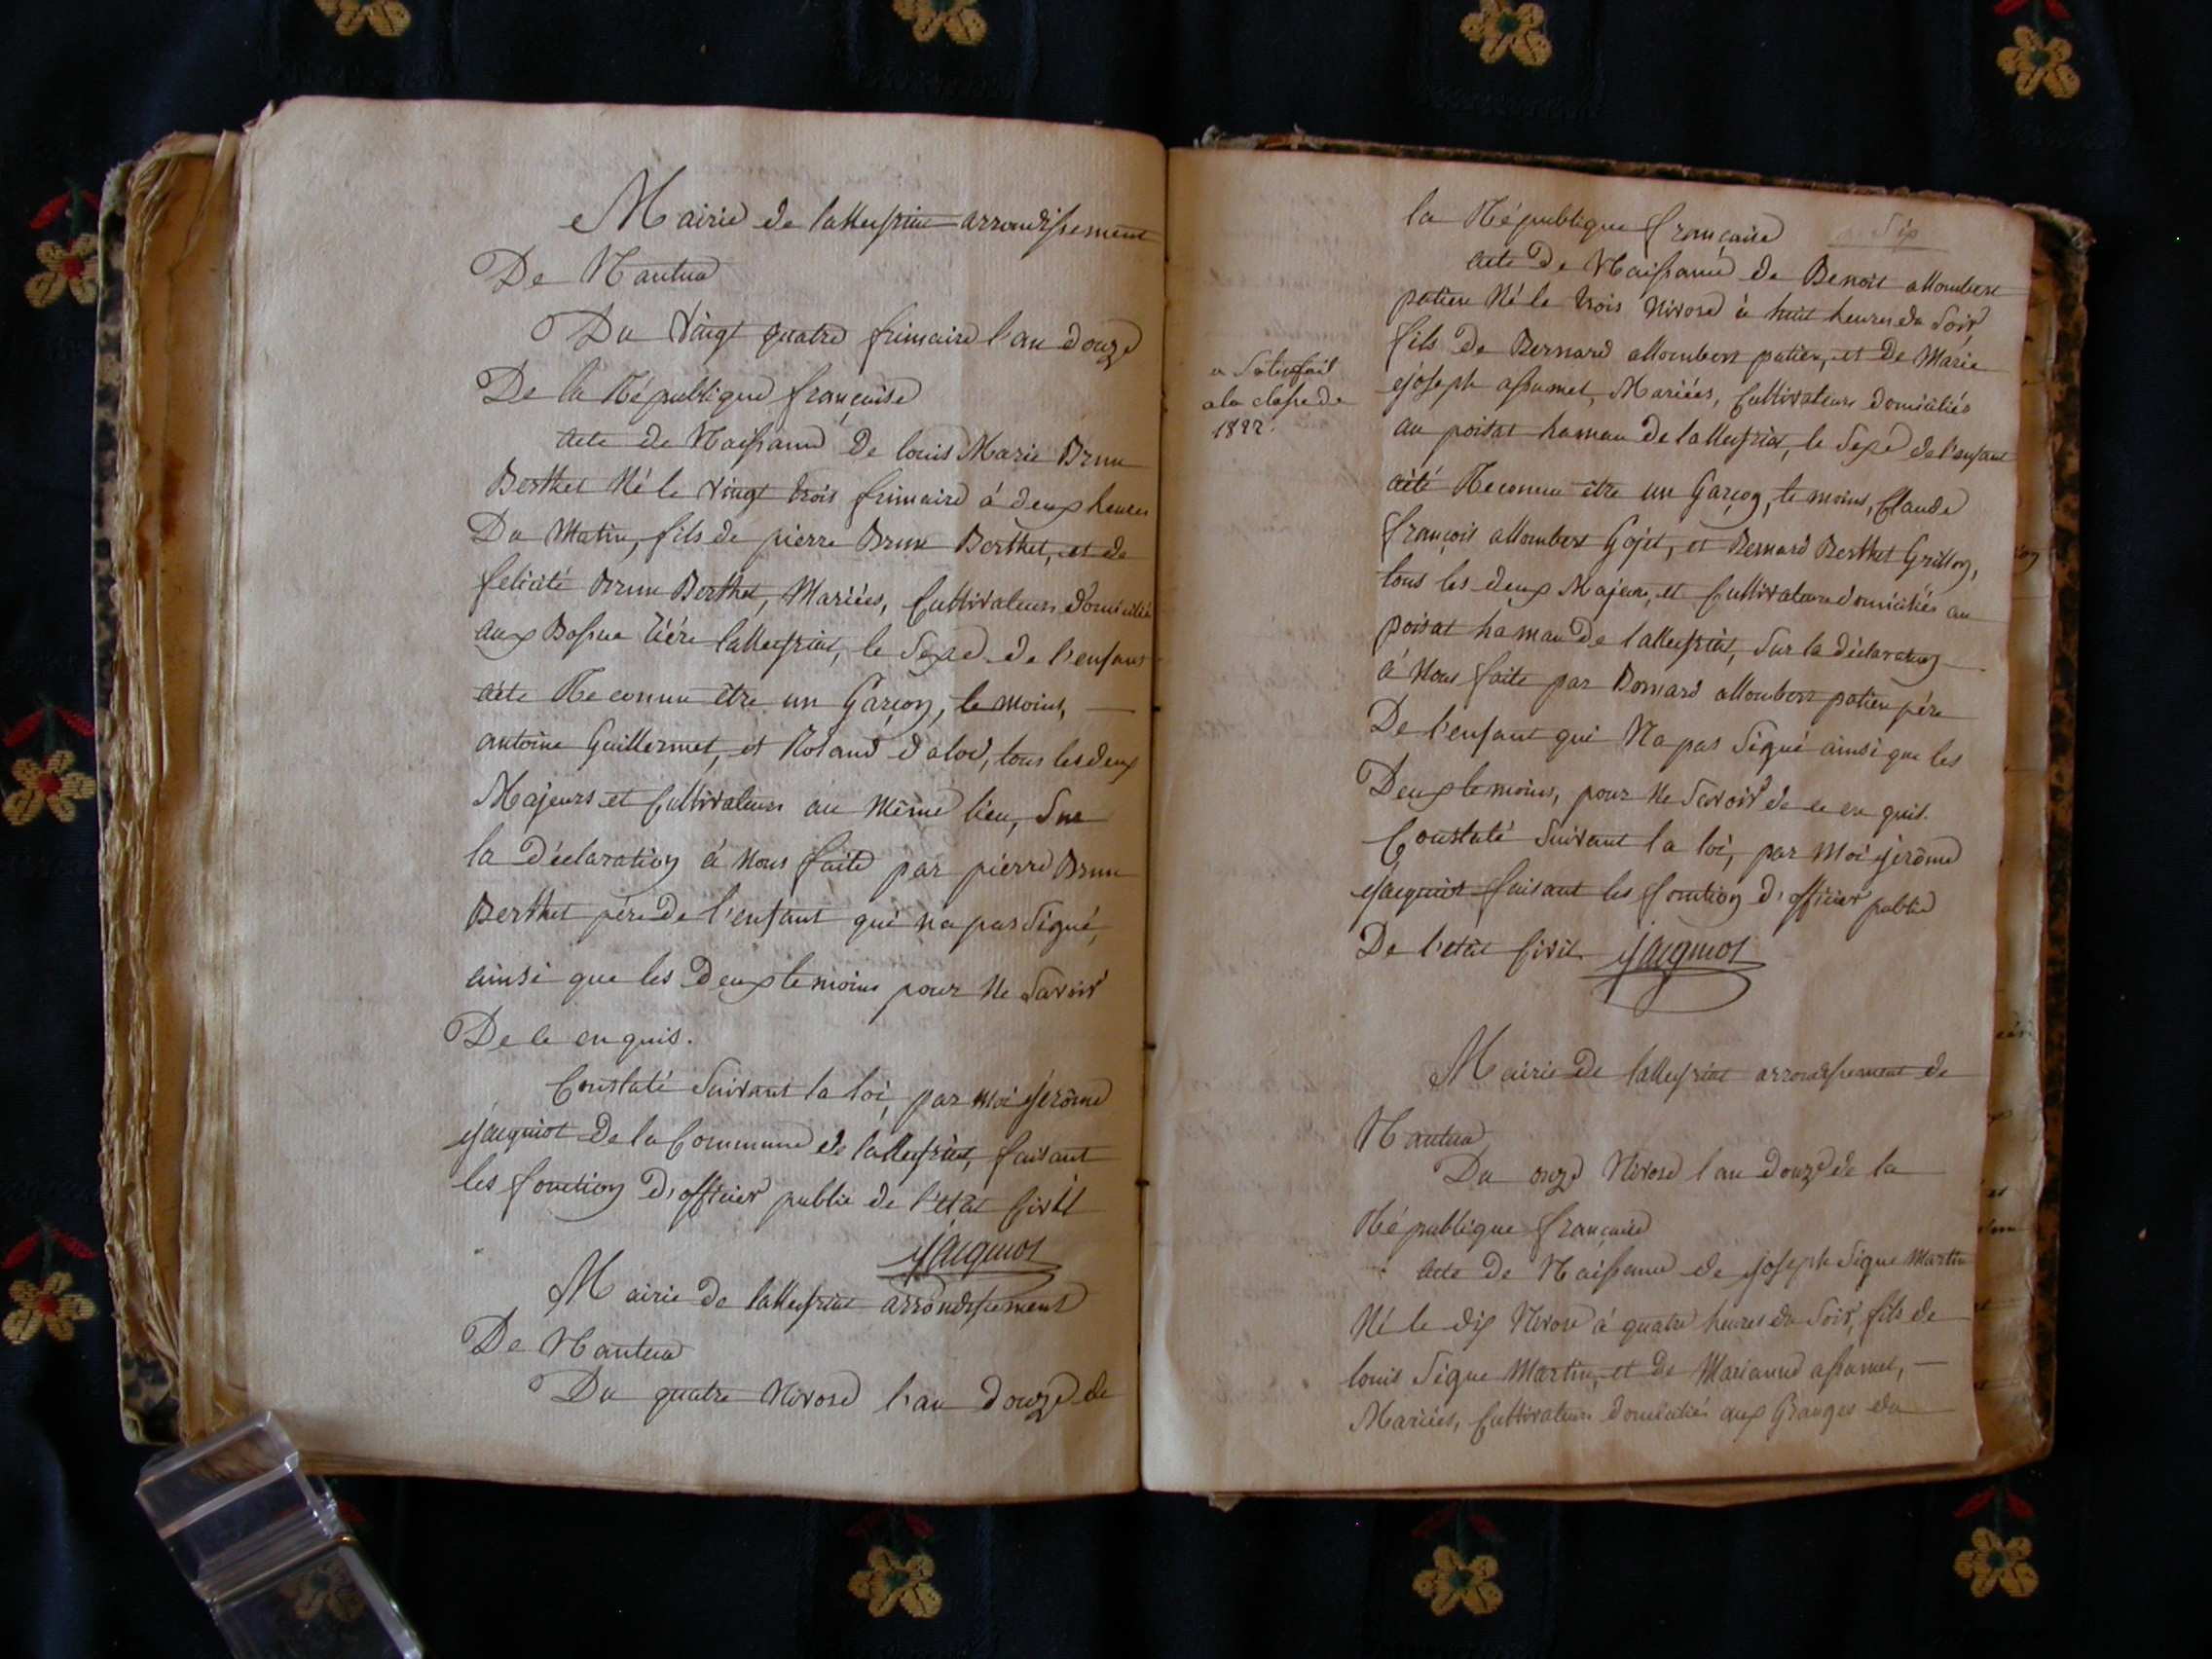 Mairie de lalleyriat arrondissement
De Nantua
Du Vingt quatre frimaire l'an douze
De la République française
acte de Naissance De louis Marie Brun
Berthet Né le vingt trois frimaire à deux heures
Du Matin, fils de pierre Brun Berthet, et de
felicité Brun Berthet, Mariées, Cultivateurs domicilié
aux Rière lalleyriat, le Sexe de l'enfant
aété Reconnu être un Garçon, temoins,
antoine Guillermet, et Roland dalod, tous les deux
Majeurs et Cultivateurs au même lieu, Sur
la Déclaration à Nous faite par pierre Brun
Berthet père De l'enfant qui na pas Signé,
ainsi que les Deux temoins pour Ne Savoir
De ce enquis.
Constaté Suivant la loi, par moi jerôme
jacquiot De la Commune de lalleyriat, faisant
les fonction D'officier public de l'état Civil
jacquiot
Mairie de lalleyriat arrondissement
De Nantua
Du quatre Nivose l'an douze de
la République française
acte De Naissance de Benoit allombert
patien Né le trois Nivose à huit heures du Soir
a Satisfait
a la classe de
1822.
fils De Bernard allombert patien, et De Marie
joseph assumel, Mariées, Cultivateurs domiciliés
au poisat hamau De lalleyriat, le Sexe de l'enfant
aété Reconnu être un Garçon, temoins, Claude
françois allombert Gojet, et Bernard Berthet Grillon,
tous les deux Majeurs, et Cultivateurs domiciliés au
poisat hamau De lalleyriat, Sur la déclaration
à Nous faite par Bernard allombert patien père
De l'enfant qui Na pas Signé ainsi que les
Deux temoins, pour Ne Savoir de ce enquis.
Constaté Suivant la loi, par Moi jerôme
jacquiot faisant les fonction d'officier public
De l'état Civil jacquiot
Mairie De lalleyriat arrondissement de
Nantua
Du onze Nivose l'an Douze de la
République française
acte De Naissance de joseph Sigue Martin
Né le dix Nivose à quatre heures du Soir, fils de
louis Sigue Martin, et De Marianne assumel,
Mariées, Cultivateurs Domiciliés aux Granges du